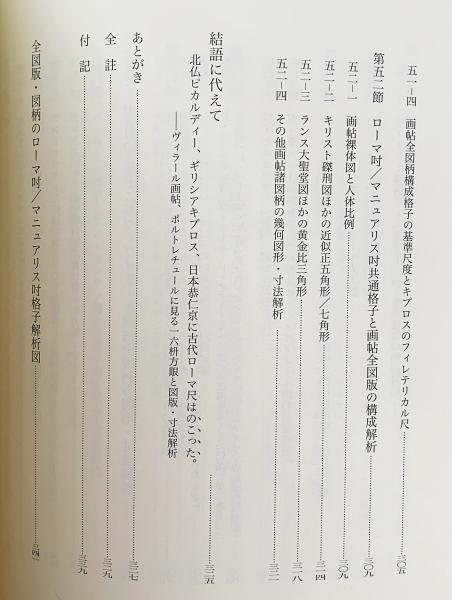 五一－四　画帖全図柄構成格子の基準尺度とキプロスのフィレテリカル尺………三〇五
第五二節　ローマ吋／マニュアリス吋共通格子と画帖全図版の構成解析………三〇九
五二－一　画帖裸体図と人体比例………三〇九
五二－二　キリスト磔刑図ほかの近似正五角形／七角形………三一四
五二－三　ランス大聖堂図ほかの黄金比三角形………三一八
五二－四　その他画帖諸図柄の幾何図形・寸法解析………三二一
結語に代えて………三二五
北仏ピカルディー、ギリシアキプロス、日本恭仁京に古代ローマ尺はのこった。
――ヴィラール画帖、ポルトレチュールに見る一六枡方眼と図版・寸法解析
あとがき………三二七
全註………三二九
付記………三三九
全図版・図柄のローマ吋／マニュアリス吋格子解析図………三四一